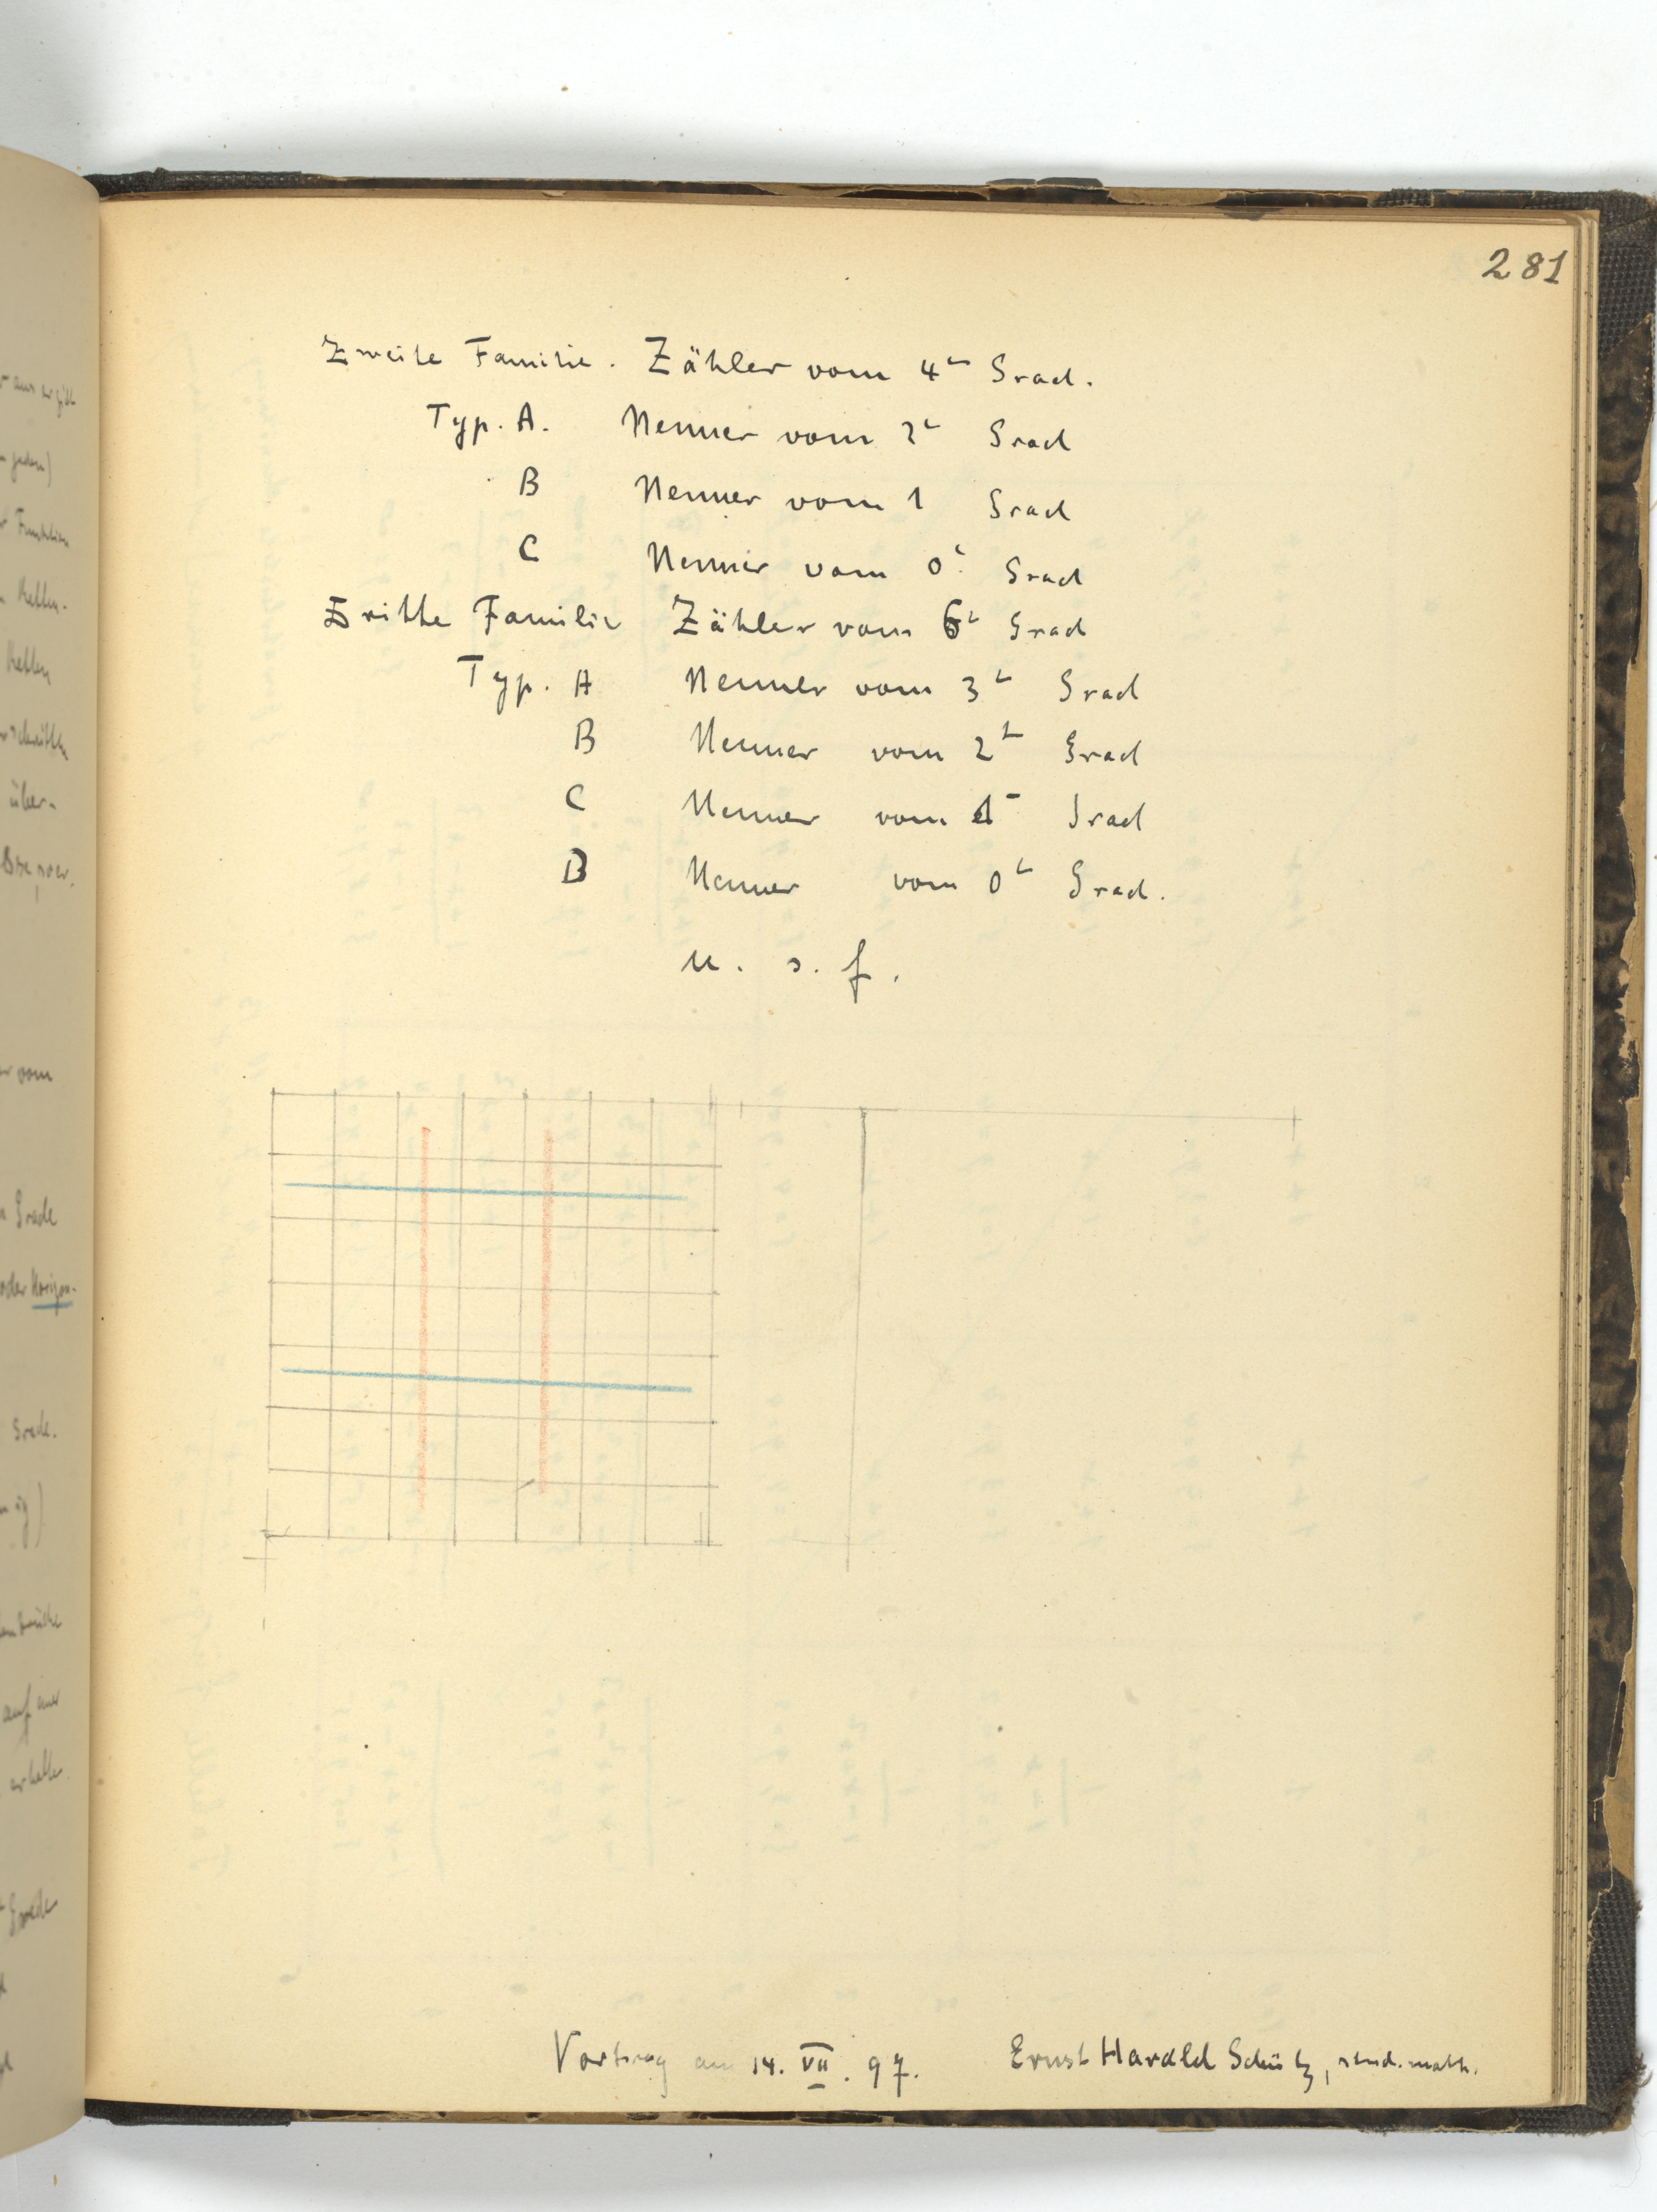 281
Zweite Familie. Zähler vom 4ᵗ Grad.
Typ. A. Nenner vom 2ᵗ Grad
B Nenner vom 1 Grad
C Nenner vom 0ᵗ Grad
Dritte Familie Zähler vom 6ᵗ Grad
Typ. A Nenner vom 3ᵗ Grad
B Nenner vom 2ᵗ Grad
C Nenner vom 1ᵗ Grad
D Nenner vom 0ᵗ Grad.
u. s. f.
Vortrag am 14. VII. 97. Ernst Harald Schütz, stud. math.